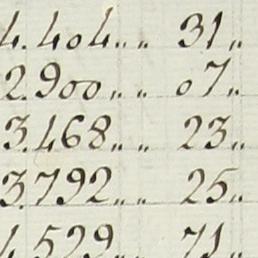 4.404„ „ 31„
2.900„ „ 07„
3.468„ „ 23„
3.792„ „ 25„
4.529„ „ 71„